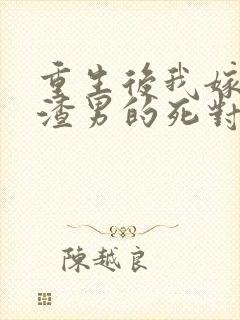 重生後我嫁
渣男的死對
陳越良